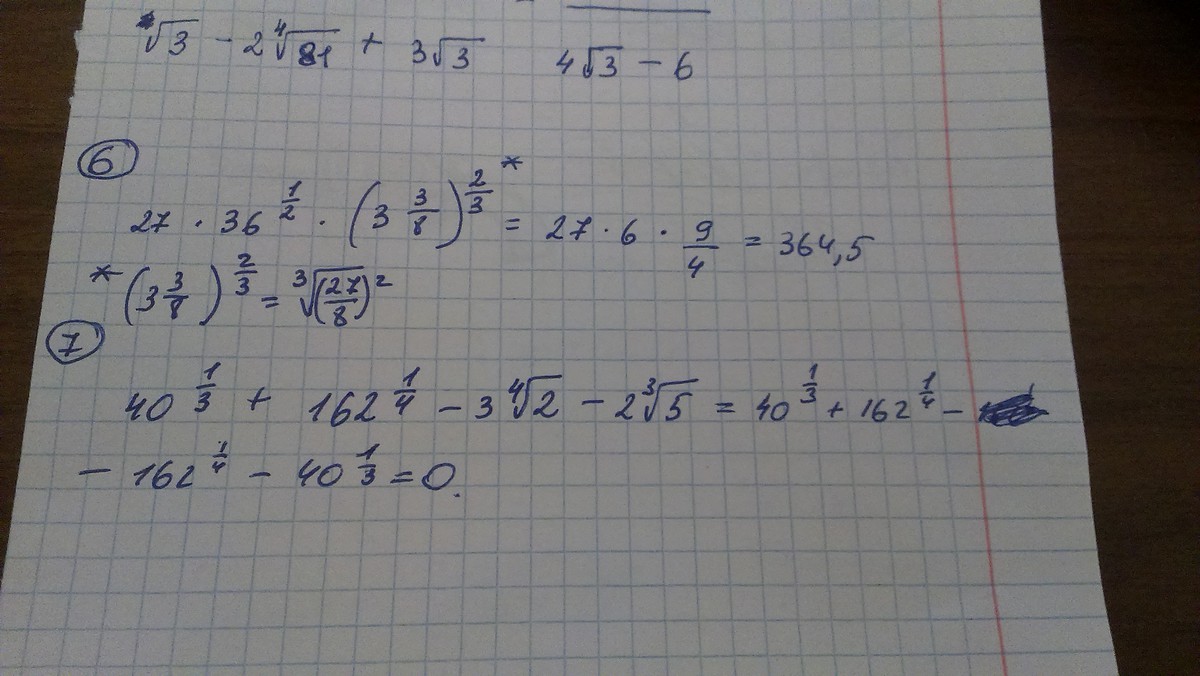 √3 − 2⁴√81 + 3√3 4√3 − 6
⑥
27 · 36^(1/2) · (3 3/8)^(2/3) * = 27 · 6 · 9/4 = 364,5
* (3 3/8)^(2/3) = ³√(27/8)²
⑦
40^(1/3) + 162^(1/4) − 3⁴√2 − 2³√5 = 40^(1/3) + 162^(1/4) −
− 162^(1/4) − 40^(1/3) = 0.